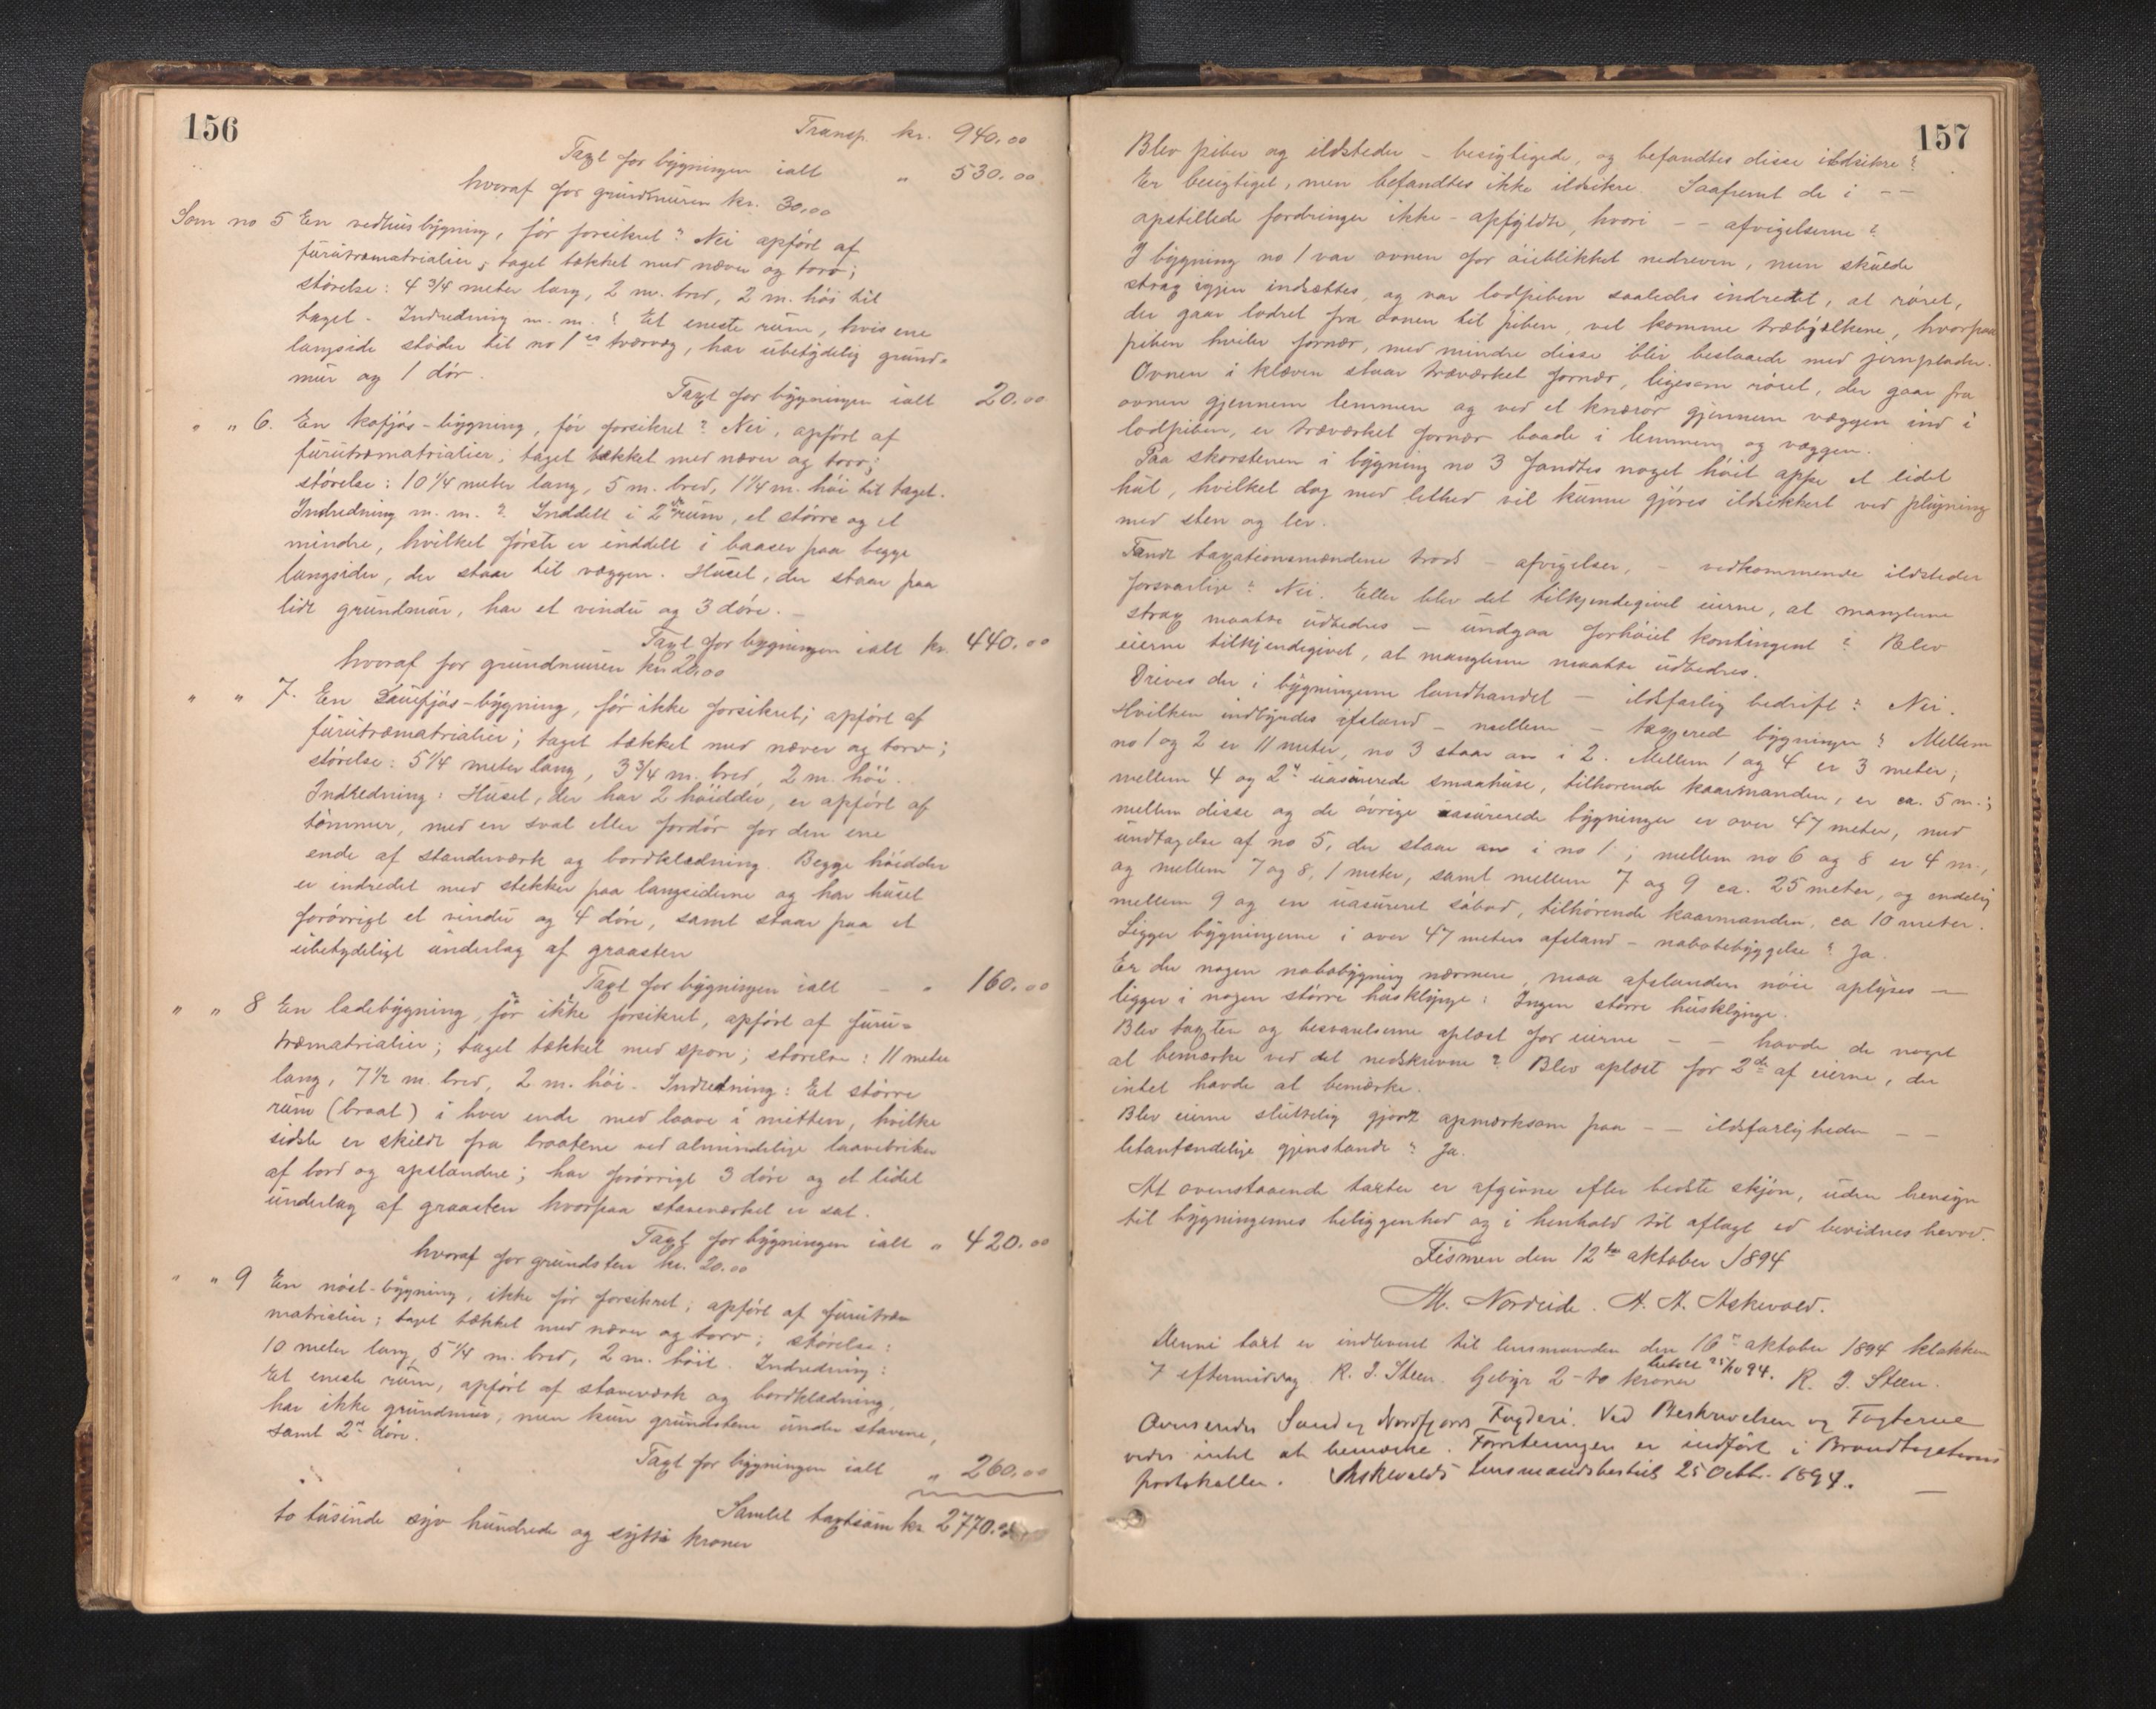 156
Transp. kr. 940,00
Taxt for bygningen ialt " 530,00
hvoraf for grundmuren kr. 30,00
Som no 5 En vedhusbygning, før forsikret? Nei opført af
furutræmatrialier, taget tækket med næver og torv;
størelse: 4 3/4 meter lang, 2 m. bred, 2 m. høi til
taget. Indredning m. m.? Et eneste rum, hvis ene
langside støder til no 1es tværvæg, har ubetydelig grund-
mur og 1 dør.
Taxt for bygningen ialt 20,00
" " 6. En kofjøs-bygning, før forsikret? Nei, opført af
furutræmatrialier; taget tækket med næver og torv;
størelse: 10 1/4 meter lang, 5 m. bred, 1 1/4 m. høi til taget.
Indredning m. m.? Inddelt i 2de rum, et større og et
mindre, hvilket første er inddelt i baaser paa begge
langsider, der staar til væggen. Huset, der staar paa
lidt grundmur, har et vindu og 3 døre. -
Taxt for bygningen ialt kr. 440,00
hvoraf for grundmuren kr. 20,00
" " 7. En Sauefjøs-bygning, før ikke forsikret; opført af
furutræmatrialier; taget tækket med næver og torv;
størelse: 5 1/4 meter lang, 3 3/4 m. bred, 2 m. høi.
Indredning: Huset, der har 2 høidder, er opført af
tømmer, med en sval eller fordør for den ene
ende af standerværk og bordklædning. Begge høidder
er indredet med stekker paa langsiderne og har huset
forøvrigt et vindu og 4 døre, samt staar paa et
ubetydeligt underlag af graasten
Taxt for bygningen ialt - " 160,00
" " 8 En ladebygning, før ikke forsikret, opført af furu-
træmatrialier; taget tækket med spon; størelse: 11 meter
lang, 7 1/2 m. bred, 2 m. høi. Indredning: Et større
rum (braat) i hver ende med laave i mitten, hvilke
sidste er skildt fra braatene ved almindelige laavebriker
af bord og opstandne; har forøvrigt 3 døre og et lidet
underlag af graasten hvorpaa staveværket er sat.
Taxt for bygningen ialt " 420,00
hvoraf for grundsten kr. 20,00
" " 9 En nøst-bygning, ikke før forsikret; opført af furutræ-
matrialier; taget tækket med næver og torv; størelse:
10 meter lang, 5 1/4 m. bred, 2 m. høit. Indredning:
Et eneste rum, opført af staveværk og bordklædning,
har ikke grundmur, men kun grundstene under stavene,
samt 2de døre.
Taxt for bygningen ialt " 260,00
Samlet taxtsum kr. 2770,00
to tusinde syv hundrede og sytti kroner
157
Blev piber og ildsteder - besigtigede, og befandtes disse ildsikre?
Er besigtiget, men befandtes ikke ildsikre. Saafremt de i - -
opstillede fordringer ikke - opfyldte, hvori - - afvigelserne?
I bygning no 1 var ovnen for øieblikket nedreven, men skulde
strax igjen indsættes, og var lodpiben saaledes indredet, at røret,
der gaar lodret fra ovnen til piben, vil komme træbjælkerne, hvorpaa
piben hviler fornær, med mindre disse blir beslaaede med jernplader.
Ovnen i kleven staar træværket fornær, ligesom røret, der gaar fra
ovnen gjennem lemmen og ved et knærør gjennem væggen ind i
lodpiben, er træværket fornær baade i lemmen og væggen.
Paa skorstenen i bygning no 3 fandtes noget høit oppe et lidet
hul, hvilket dog med lethed vil kunne gjøres ildsikkert ved plugning
med sten og ler.
Fandt taxationsmændene trods - afvigelser, - vedkommende ildsteder
forsvarlige? Nei. Eller blev det tilkjendegivet eierne, at manglerne
strax maatte udbedres - undgaa forhøiet kontingent? Blev
eierne tilkjendegivet, at manglerne maatte udbedres.
Drives der i bygningerne landhandel - ildsfarlig bedrift? Nei.
Hvilken indbyrdes afstand - mellem - taxerede bygninger? Mellem
no 1 og 2 er 11 meter, no 3 staar an i 2. Mellem 1 og 4 er 3 meter;
mellem 4 og 2de uasurerede smaahuse, tilhorende kaarmanden, er ca. 5 m.;
mellem disse og de øvrige uasurerede bygninger er over 47 meter, med
undtagelse af no 5, der staar an i no 1; mellem no 6 og 8 er 4 m.,
og mellem 7 og 8, 1 meter, samt mellem 7 og 9 ca. 25 meter, og endelig
mellem 9 og en uasureret søbod, tilhørende kaarmanden, ca 10 meter.
Ligger bygningerne i over 47 meters afstand - nabobebyggelse? Ja.
Er der nogen nabobygning nærmere, maa afstanden nøie oplyses -
ligger i nogen større husklynge: Ingen større husklynge.
Blev taxten og besvarelserne oplæst for eierne - - havde de noget
at bemærke ved det nedskrevne? Blev oplæst for 2de af eierne, der
intet havde at bemærke.
Blev eierne sluttelig gjordt opmærksom paa - - ildsfarligheden - -
letantændelige gjenstande? Ja.
At ovenstaaende taxter er afgivne efter bedste skjøn, uden hensyn
til bygningernes beliggenhed og i henhold til aflagt ed bevidnes herved.
Tismen den 12te oktober 1894
M. Nordeide. A. A. Askevold.
Denne taxt er indleveret til lensmanden den 16de oktober 1894 klokken
7 eftermiddag. R. J. Steen. Gebyr 2 - to kroner betalt 25/10 94. R. J. Steen.
Oversendes Sønd og Nordfjord Fogderi. Ved Beskrivelsen og Taxterne
vides intet at bemærke. Forretningen er indført i Brandtaxations
protokollen. Askevolds Lensmandsbestil 25 Octbr. 1894.